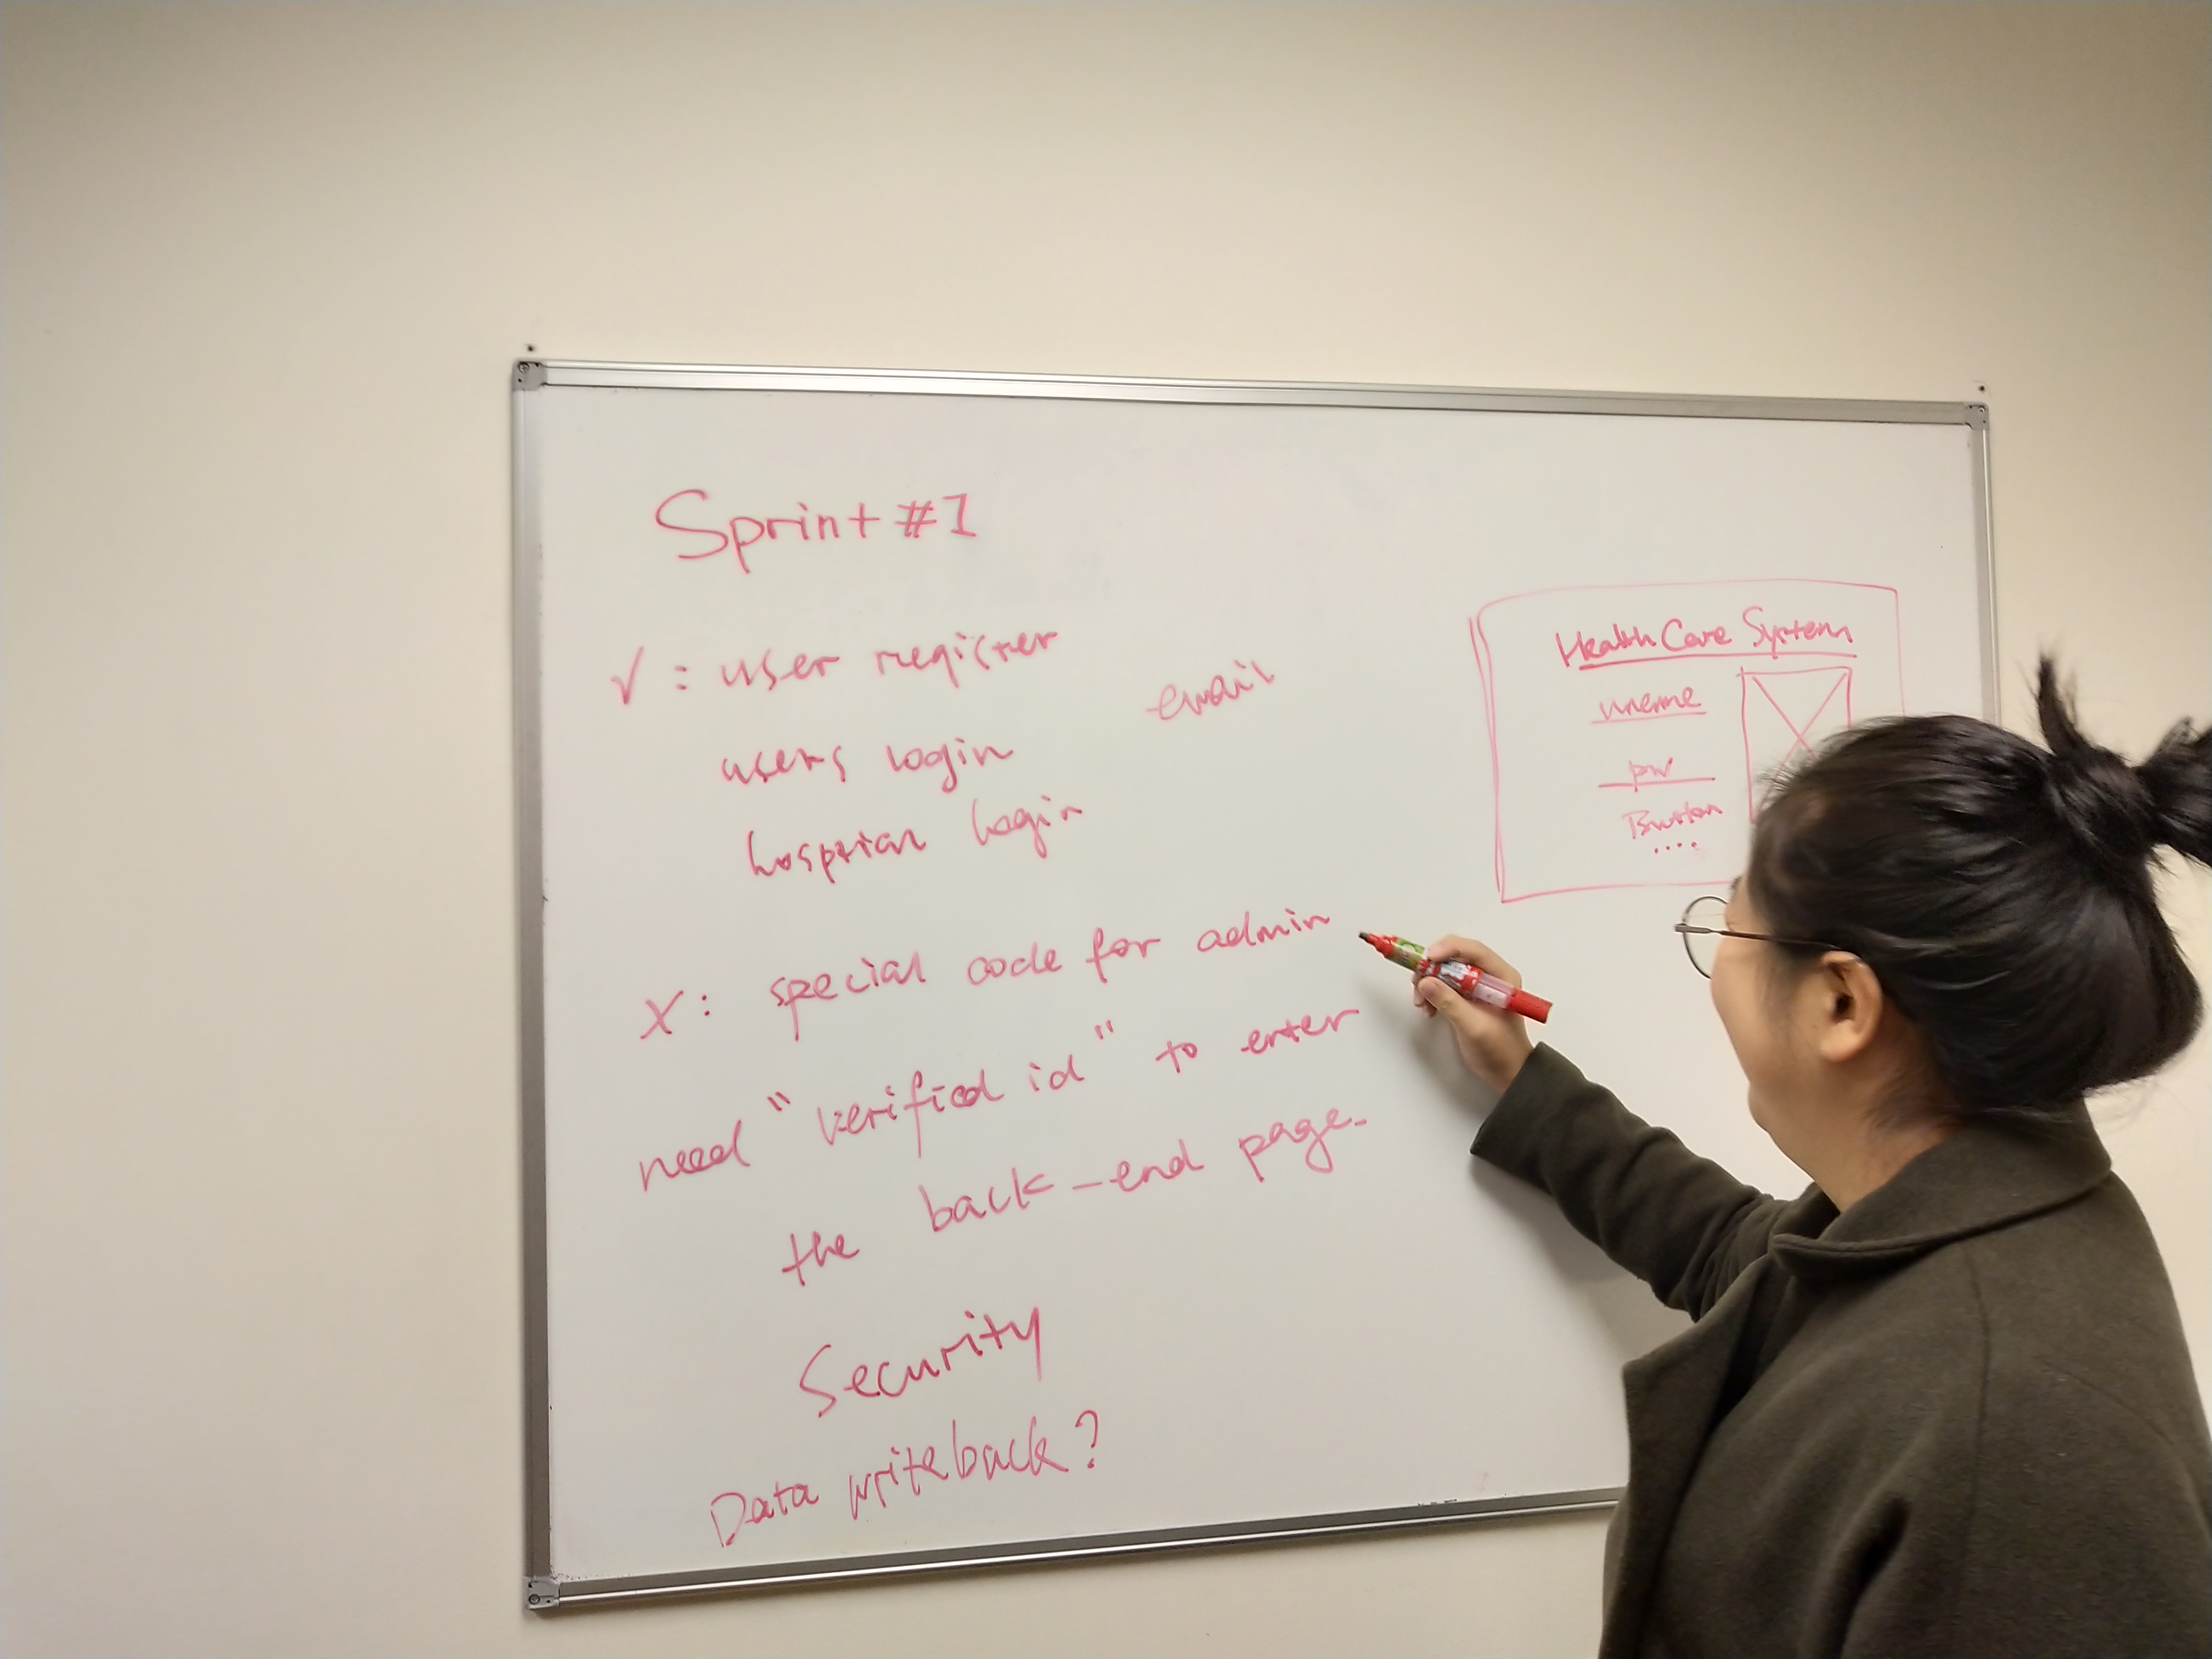 Sprint #1
√ : user register
email
users login
hospital login
X : special code for admin
need "verified id" to enter
the back-end page.
Security
Data writeback?
HealthCare System
uname
pw
Button
....